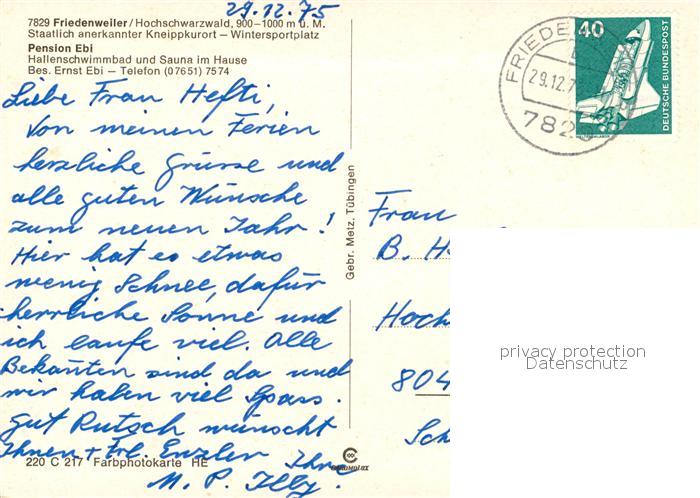 29.12.75
7829 Friedenweiler/Hochschwarzwald, 900–1000 m ü. M.
Staatlich anerkannter Kneippkurort — Wintersportplatz
Pension Ebi
Hallenschwimmbad und Sauna im Hause
Bes. Ernst Ebi — Telefon (07651) 7574
Liebe Frau Hefti,
Von meinen Ferien
herzliche Grüsse und
alle guten Wünsche
zum neuen Jahr!
Hier hat es etwas
wenig Schnee, dafür
herrliche Sonne und
ich laufe viel. Alle
Bekannten sind da und
wir haben viel Spass.
Gut Rutsch wünscht
Ihnen + Frl. Enzler Ihre
M. P.
220 C 217 Farbphotokarte HE
Gebr. Metz, Tübingen
FRIEDE
29.12.7
782
40
DEUTSCHE BUNDESPOST
Frau
B. H
Hoch
804
Sch
privacy protection
Datenschutz